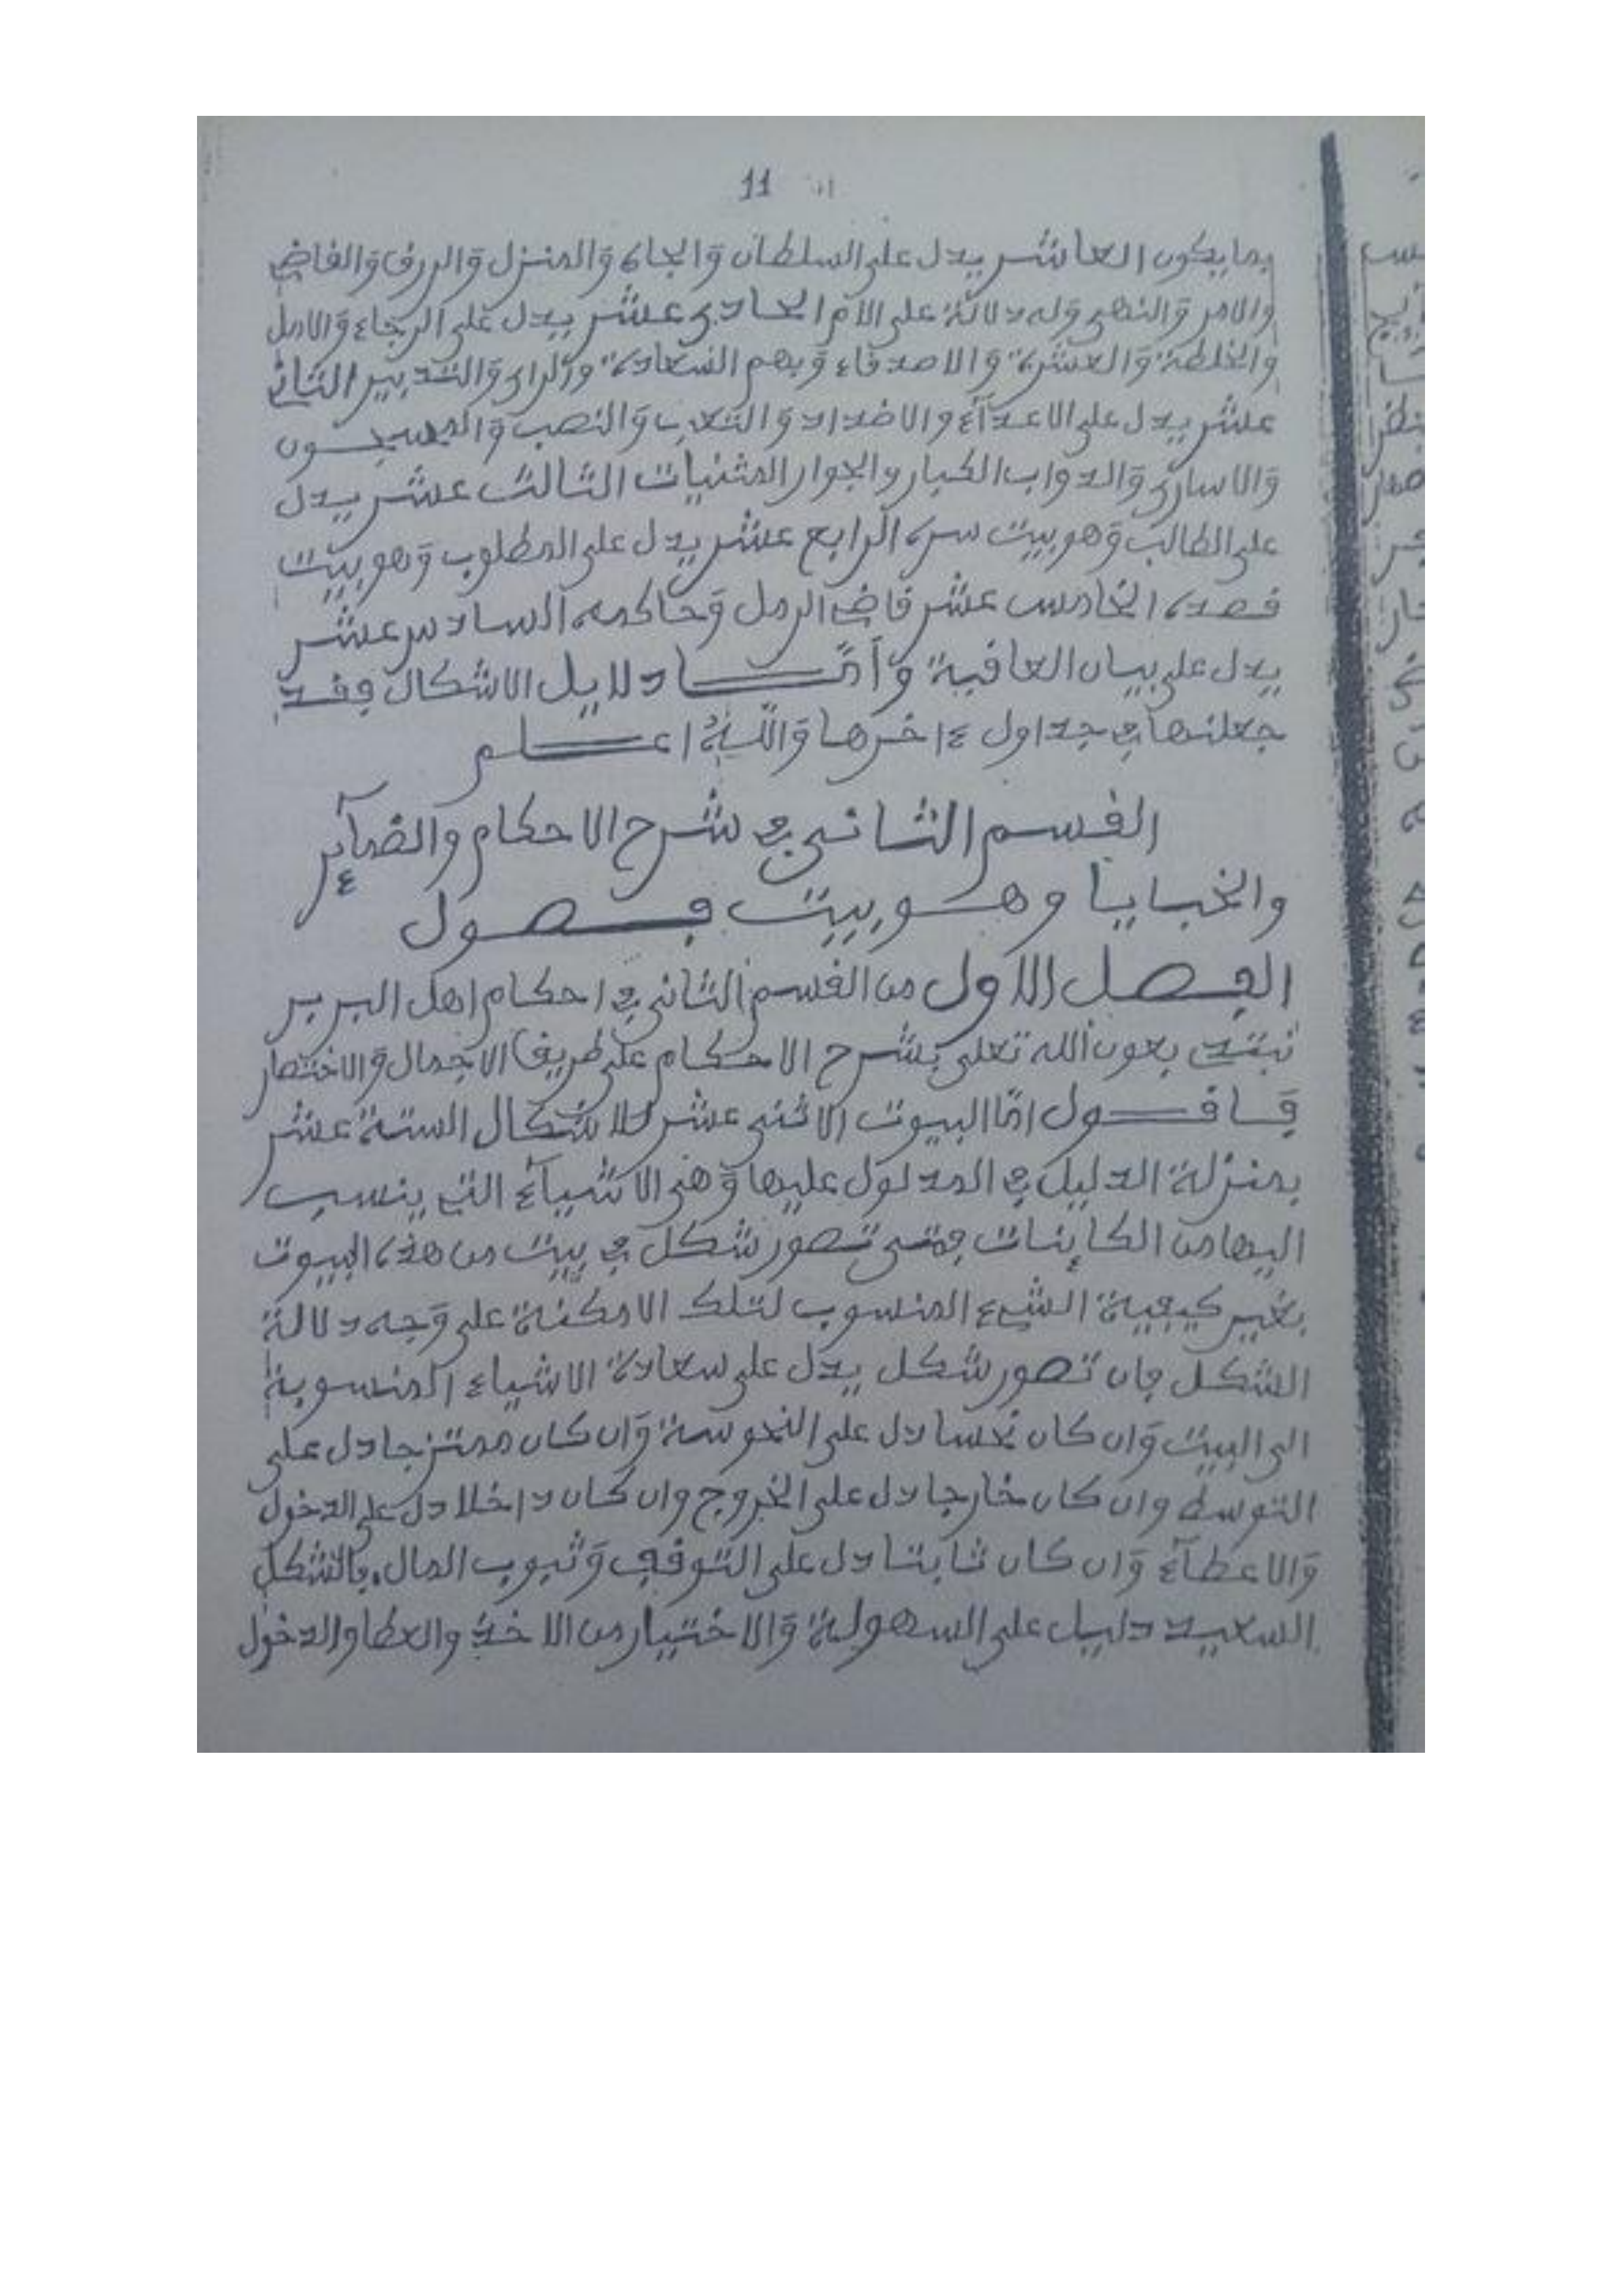 11
بما يكون العاشر يدل على السلطان والجاه والمنزل والرزق والقاضي
والامر والنهي وله دلالة على الام الحادي عشر يدل على الرجاء والامل
والخلطة والعشرة والاصدقاء وبهم السعادة والراي والتدبير الثاني
عشر يدل على الاعدآء والاضداد والتعب والنصب والمسجون
والاسارى والدواب الكبار والجوار المثنيات الثالث عشر يدل
على الطالب وهو بيت سره الرابع عشر يدل على المطلوب وهو بيت
قصده الخامس عشر قاضي الرمل وحاكمه السادس عشر
يدل على بيان العاقبة وأمّا دلايل الاشكال فقد
جعلنها في جداول ءاخرها واللّه اعلم
القسم الثاني في شرح الاحكام والضمآئر
والخبايا وهو بيت فصول
الفصل الاول من القسم الثاني في احكام اهل البربر
نبتدء بعون الله تعلى بشرح الاحكام على طريق الاجمال والاختصار
فاقول امّا البيوت الاثنى عشر للاشكال الستة عشر
بمنزلة الدليل في المدلول عليها وهي الاشيآء التي ينسب
اليها من الكاينات فمتى تصور شكل في بيت من هذه البيوت
بغير كيفية الشيء المنسوب لتلك الامكنة على وجه دلالة
الشكل فان تصور شكل يدل على سعادة الاشياء المنسوبة
الى البيت وان كان نحسا دل على النحوسة وان كان ممتزجا دل على
التوسط وان كان خارجا دل على الخروج وان كان داخلا دل على الدخول
والاعطآء وان كان ثابتا دل على التوقف وثبوب المال فالشكل
السعيد دليل على السهولة والاختيار من الاخذ والعطا والدخول